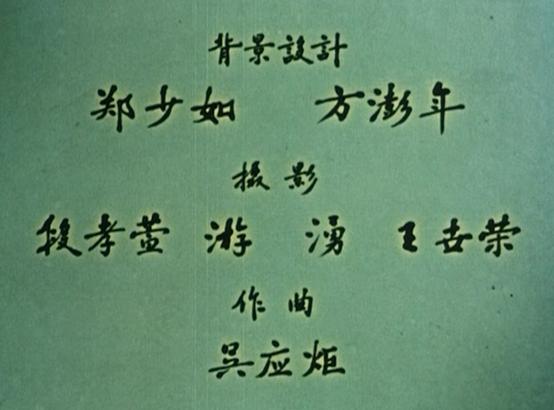 背景設計
郑少如 方澎年
摄影
段孝萱 游湧 王世荣
作曲
吴应炬